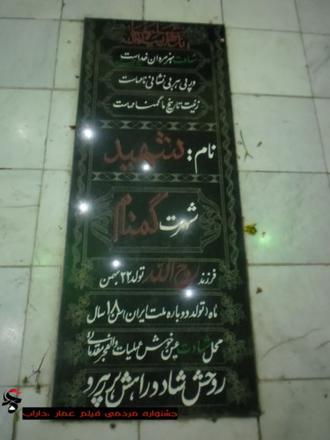 شهادت هنر مردان خداست
در پی هر بی نشانی نامهاست
زینت تاریخ ما گمنامهاست
نام: شهید
شهرت گمنام
فرزند روح الله تولد ۲۲ بهمن
ماه (تولد دوباره ملت ایران) سن ۱۸ سال
محل شهادت عین خوش عملیات والفجر مقدماتی
روحش شاد و راهش پر رهرو
جشنواره مردمی فیلم عمار .داراب